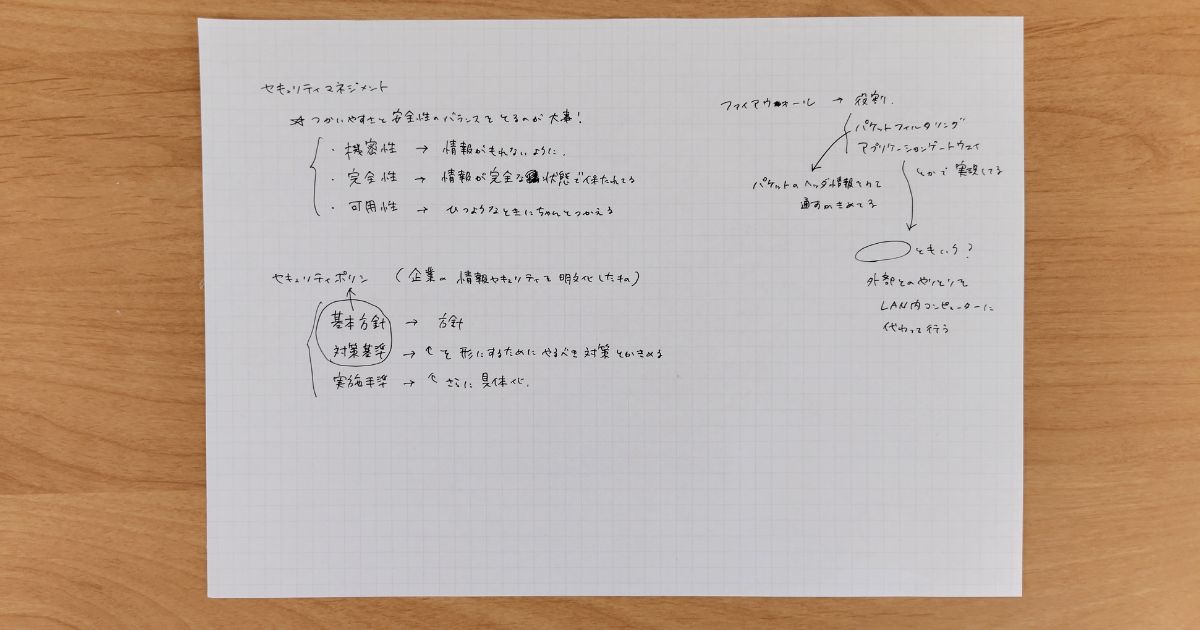 セキュリティマネジメント
☆ つかいやすさと安全性のバランスをとるのが大事!
・機密性 → 情報がもれないように.
・完全性 → 情報が完全な状態で保たれてる
・可用性 → ひつようなときにちゃんとつかえる
セキュリティポリシ (企業の情報セキュリティを明文化したもの)
基本方針 → 方針
対策基準 → ↑を形にするためにやるべき対策とかきめる
実施手準 → ↑さらに具体化.
ファイアウォール → 役割.
パケットフィルタリング
アプリケーションゲートウェイ
とかで実現してる
パケットのヘッダ情報をみて
通すかきめてる
ともいう?
外部とのやりとりを
LAN内コンピューターに
代わって行う